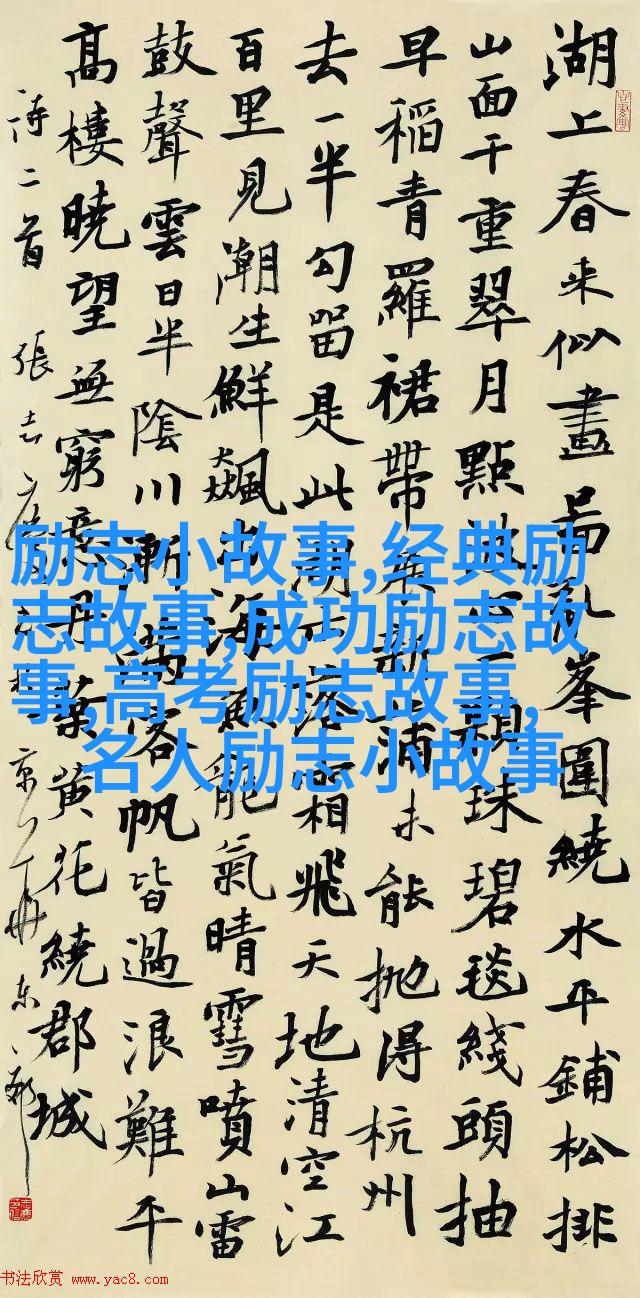 湖上春来似畫啚亂峯圍繞水平鋪松排
山面千重翠月點波心一顆珠碧毯綫頭抽
早稻青羅裙帶展新蒲未能抛得杭州
去一半勾留是此湖山落霜飛天地清空江
百里見潮生鮮飆出海魚龍氣晴雪噴山雷
鼓聲雲日半陰川漸滿客帆皆過浪難平
高樓曉望無窮意丹葉黄花繞郡城
詩二首 張志
励志小故事,经典励
志故事,成功励志故
事,高考励志故事,
名人励志小故事
书法欣赏 www.yac8.com